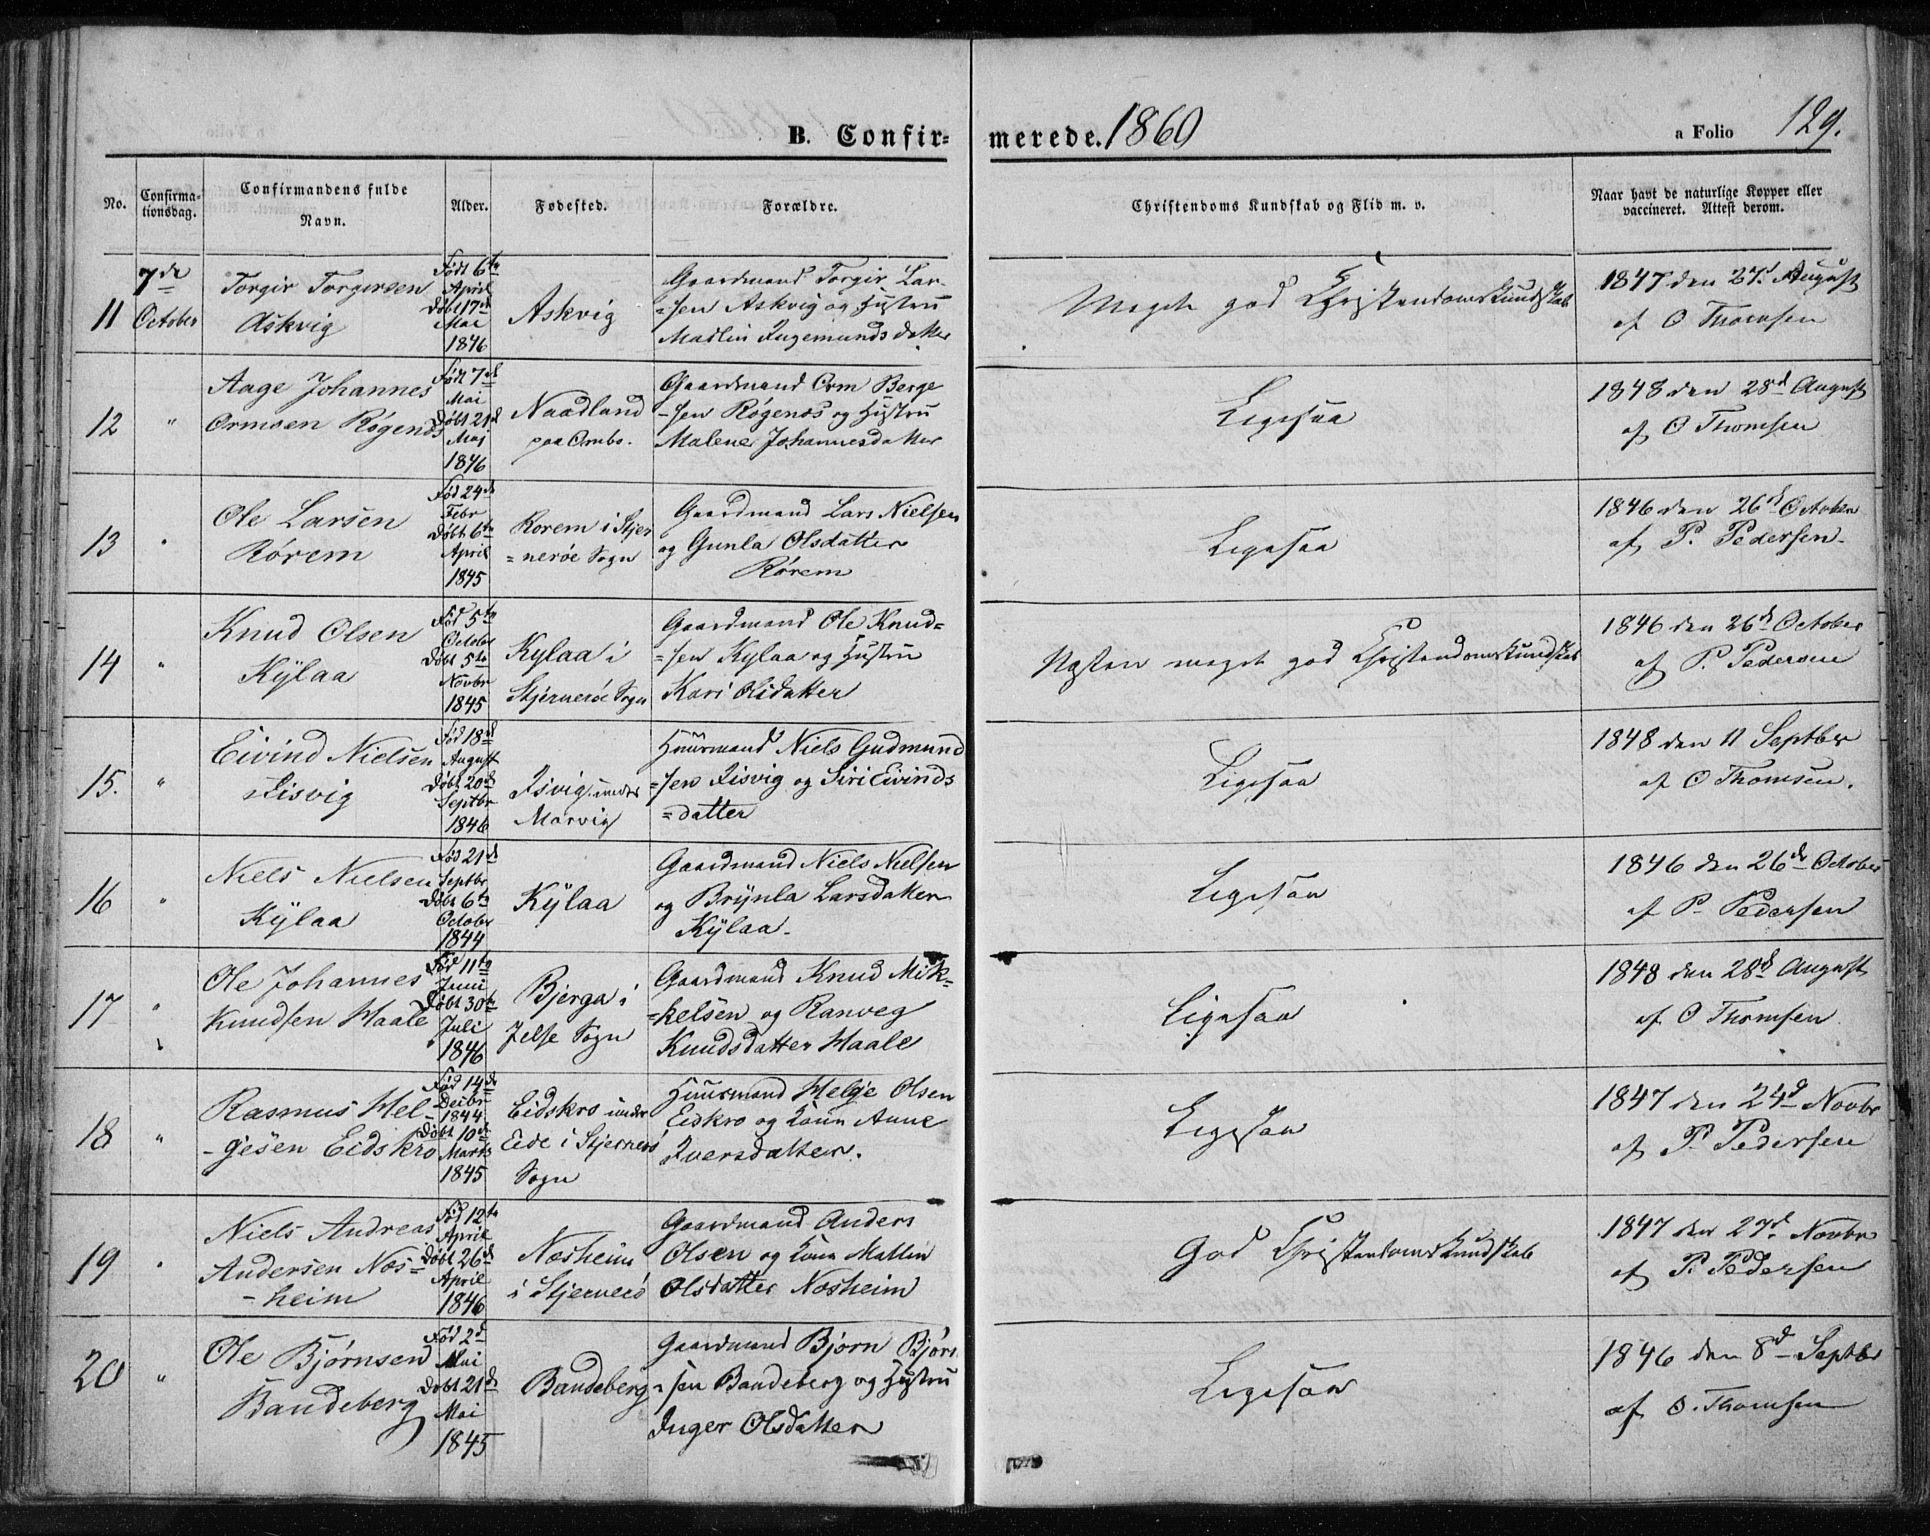 B. Confirmerede. 1860
a Folio 129.
No.
Confirma-
tionsdag.
Confirmandens fulde
Navn.
Alder.
Fødested.
Forældre.
Christendoms Kundskab og Flid m. v.
Naar havt de naturlige Kopper eller
vaccineret. Attest derom.
11
7de
October
Torgir Torgersen
Askvig
Født 6te
April
Døbt 17de
Mai
1846
Askvig
Gaardmand Torgir Lar-
=sen Askvig og Hustru
Madlin Ingemundsdatter
Meget god Christendomskundskab
1847 den 27d August
af O Thomsen
12
"
Aage Johannes
Ormsen Røgenæs
Født 7de
Mai
Døbt 21d
Maj
1846
Naadland
paa Ombo.
Gaardmand Orm Berge
-sen Røgenæs og Hustru
Malene Johannesdatter
Ligesaa
1848 den 28d August
af O Thomsen
13
"
Ole Larsen
Rørem
Fød 24de
Febr
Døbt 6te
April
1845
Rorem i Stjer
=nerøe Sogn
Gaardmand Lars Nielsen
og Gunla Olsdatter
Rørem
Ligesaa
1846 den 26d October
af P. Pedersen
14
"
Knud Olsen
Kÿlaa
Fød 5te
October
Døbt 5te
Novbr
1845
Kylaa i
Stjernerøe Sogn
Gaardmand Ole Knud=
=sen Kylaa og Hustru
Kari Olsdatter
Næsten meget god Christendomskundskab
1846 den 26d October
af P. Pedersen
15.
"
Eivind Nielsen
Iisvig
Fød 18de
August
Døbt 20de
Septbr
1846
Isvig under
Marvig
Huusmand Niels Gudmund
=sen Iisvig og Siri Eivinds
=datter
Ligesaa
1848 den 11 Septbr
af O Thomsen.
16
"
Niels Nielsen
Kÿlaa
Fød 21de
Septbr
Døbt 6te
October
1844
Kÿlaa
Gaardmand Niels Nielsen
og Brÿnla Larsdatter
Kÿlaa.
Ligesaa
1846 den 26de October
af P. Pedersen
17
"
Ole Johannes
Knudsen Haale
Fød 11te
Juni
Døbt 30te
Juli
1846
Bjerga i
Jelse Sogn
Gaardmand Knud Mik-
-kelsen og Ranveg
Knudsdatter Haale
Ligesaa
1848 den 28d August
af O Thomsen
18
"
Rasmus Hel
-gesen Eidskro
Fød 14de
Decbr
1844
Døbt 10de
Marts
1845
Eidskro under
Eide i Stjernerö
Sogn
Huusmand Helge Olsen
Eidskro og Kone Anne
Iversdatter.
Ligesaa
1847 den 24d Novbr
af P. Pedersen
19
"
Niels Andreas
Andersen Næs=
=heim
Fød 12te
April
Døbt 26de
April
1846
Næsheim
i Stjernerö
Gaardmand Anders
Olsen og Kone Mallin
Olsdatter Næsheim
God Christendomskundskab
1847 den 27d. Novbr
af P. Pedersen
20
"
Ole Bjørnsen
Bandeberg
Fød 2d
Mai
Døbt 21de
Mai
1845
Bandeberg
Gaardmand Bjørn Bjørn
=sen Bandeberg og Hustru
Inger Olsdatter
Ligesaa
1846 den 8d Septbr
af O. Thomsen